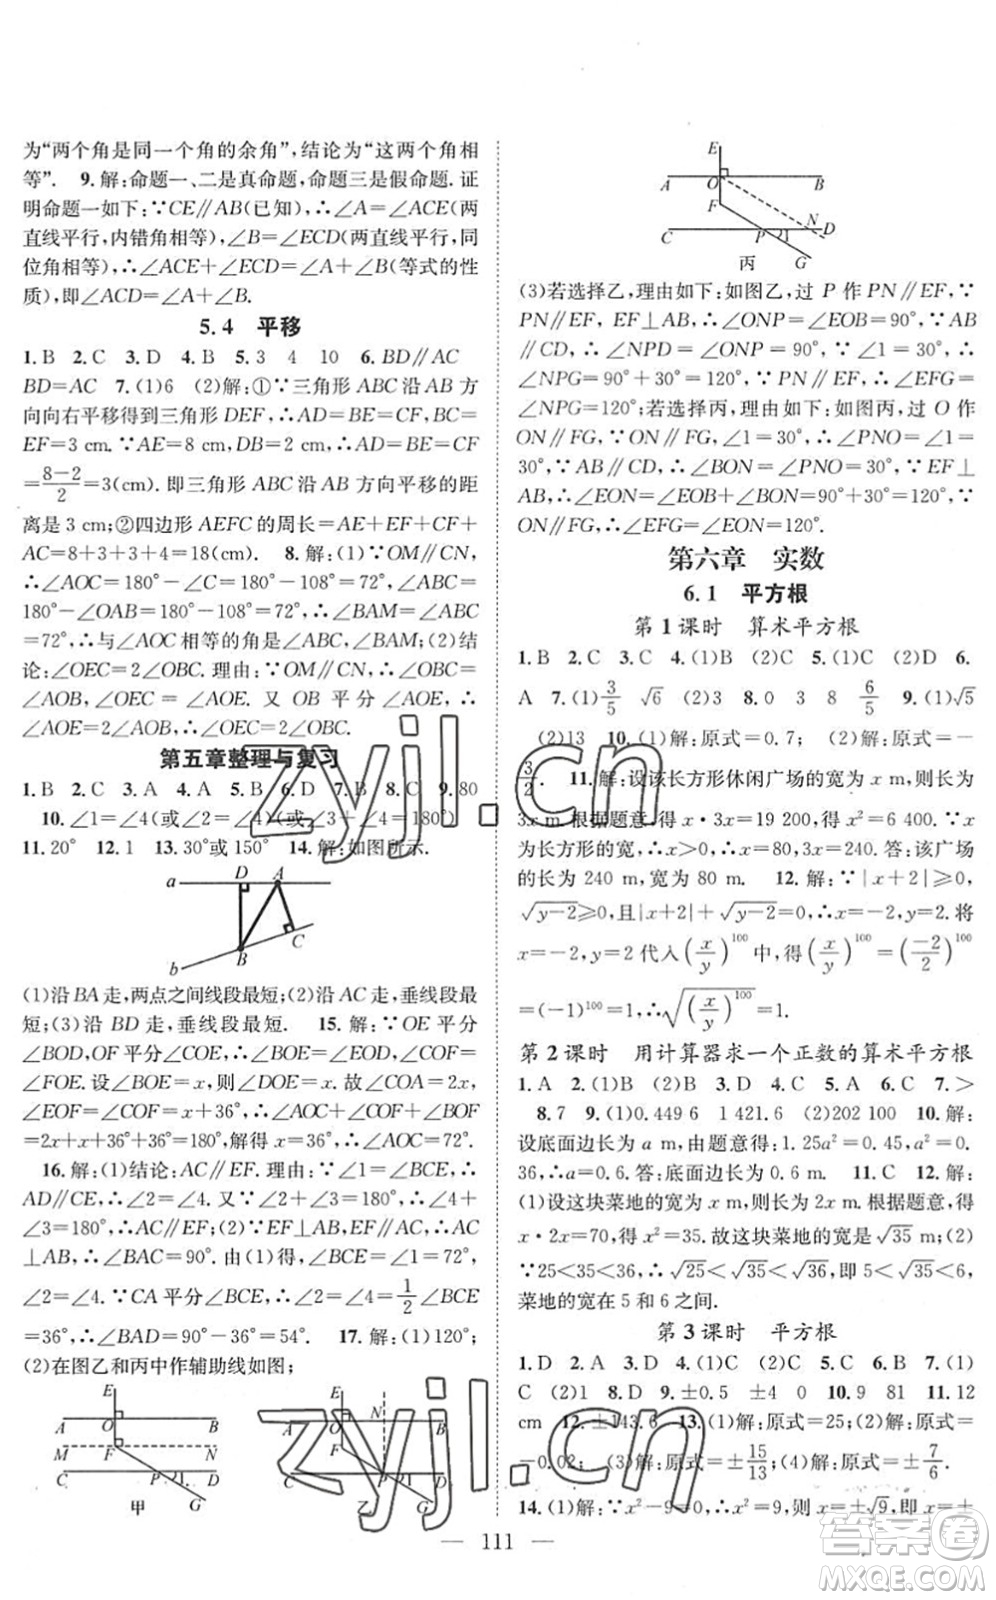 为“两个角是同一个角的余角”,结论为“这两个角相
等”. 9.解:命题一、二是真命题,命题三是假命题.证
明命题一如下:∵CE∥AB(已知),∴∠A=∠ACE(两
直线平行,内错角相等),∠B=∠ECD(两直线平行,同
位角相等),∴∠ACE+∠ECD=∠A+∠B(等式的性
质),即∠ACD=∠A+∠B.
5.4 平移
1.B 2.C 3.D 4.B 5.3 4 10 6.BD∥AC
BD=AC 7.(1)6 (2)解:①∵三角形ABC沿AB方
向向右平移得到三角形DEF,∴AD=BE=CF,BC=
EF=3 cm.∵AE=8 cm,DB=2 cm,∴AD=BE=CF
=\frac{8-2}{2}=3(cm).即三角形ABC沿AB方向平移的距
离是3 cm;②四边形AEFC的周长=AE+EF+CF+
AC=8+3+3+4=18(cm). 8.解:(1)∵OM∥CN,
∴∠AOC=180°-∠C=180°-108°=72°,∠ABC=
180°-∠OAB=180°-108°=72°,∴∠BAM=∠ABC
=72°,∴与∠AOC相等的角是∠ABC,∠BAM;(2)结
论:∠OEC=2∠OBC.理由:∵OM∥CN,∴∠OBC=
∠AOB,∠OEC=∠AOE.又OB平分∠AOE,∴
∠AOE=2∠AOB,∴∠OEC=2∠OBC.
第五章整理与复习
1.B 2.C 3.A 4.A 5.B 6.D 7.B 8.C 9.80
10.∠1=∠4(或∠2=∠4)(或∠3+∠4=180°)
11.20° 12.1 13.30°或150° 14.解:如图所示.
a D A
B C
b
(1)沿BA走,两点之间线段最短;(2)沿AC走,垂线段最
短;(3)沿BD走,垂线段最短. 15.解:∵OE平分
∠BOD,OF平分∠COE,∴∠BOE=∠DOE,∠COF=
∠FOE.设∠BOE=x,则∠DOE=x.故∠COA=2x,
∠EOF=∠COF=x+36°,∴∠AOC+∠COF+∠BOF
=2x+x+36°+36°=180°,解得x=36°,∴∠AOC=72°.
16.解:(1)结论:AC∥EF.理由:∵∠1=∠BCE,∴
AD∥CE,∴∠2=∠4.又∵∠2+∠3=180°,∴∠4+
∠3=180°,∴AC∥EF;(2)∵EF⊥AB,AC∥EF,∴AC
⊥AB,∴∠BAC=90°.由(1)得,∠BCE=∠1=72°,
∠2=∠4.∵CA平分∠BCE,∴∠2=∠4=\frac{1}{2}∠BCE
=36°,∴∠BAD=90°-36°=54°. 17.解:(1)120°;
(2)在图乙和丙中作辅助线如图;
E
A O B
M F N
C P D
G
甲
E N
A O B
F
C P D
G
乙
E
A O B
F
C P N D
G
丙
(3)若选择乙,理由如下:如图乙,过P作PN∥EF,∵
PN∥EF,EF⊥AB,∴∠ONP=∠EOB=90°,∵AB∥
CD,∴∠NPD=∠ONP=90°,∵∠1=30°,∴
∠NPG=90°+30°=120°,∵PN∥EF,∴∠EFG=
∠NPG=120°;若选择丙,理由如下:如图丙,过O作
ON∥FG,∵ON∥FG,∠1=30°,∴∠PNO=∠1=
30°,∵AB∥CD,∴∠BON=∠PNO=30°,∵EF⊥
AB,∴∠EOB=90°,∴∠EON=∠EOB+∠BON=90°+30°=120°,∵
ON∥FG,∴∠EFG=∠EON=120°.
第六章 实数
6.1 平方根
第1课时 算术平方根
1.B 2.C 3.C 4.(1)B (2)C 5.(1)C (2)D 6.
A 7.(1)\frac{3}{5} √6 (2)3 8.0 3 8 \frac{6}{5} 9.(1)√5
(2)13 10.(1)解:原式=0.7; (2)解:原式=-
\frac{3}{2}. 11.解:设该长方形休闲广场的宽为x m,则长为
3x m.根据题意,得x·3x=19 200,得x²=6 400.∵x
为长方形的宽,∴x>0,∴x=80,3x=240.答:该广场
的长为240 m,宽为80 m. 12.解:∵|x+2|≥0,
√(y-2)≥0,且|x+2|+√(y-2)=0,∴x=-2,y=2.将
x=-2,y=2代入(\frac{x}{y})^{100}中,得(\frac{x}{y})^{100}=(\frac{-2}{2})^{100}
=(-1)^{100}=1,∴√((\frac{x}{y})^{100})=√1=1.
第2课时 用计算器求一个正数的算术平方根
1.A 2.(1)B (2)B 3.D 4.A 5.C 6.C 7.>
8.7 9.(1)0.449 6 1 421.6 (2)202 100 10.解:
设底面边长为a m,由题意得:1.25a²=0.45,a²=0.
36,∴a=0.6.答:底面边长为0.6 m. 11.C 12.解:
(1)设这块菜地的宽为x m,则长为2x m.根据题意,得
x·2x=70,得x²=35.故这块菜地的宽是√35 m;(2)
∵25<35<36,∴√25<√35<√36,即5<√35<6,
菜地的宽在5和6之间.
第3课时 平方根
1.D 2.A 3.D 4.(1)C (2)C 5.C 6.B 7.(1)
C (2)1 8.D 9.±0.5 ±4 0 10.9 81 11.12
cm 12.±143.6 13.(1)解:原式=25;(2)解:原式=
-0.02; (3)解:原式=±\frac{15}{13};(4)解:原式=±\frac{7}{6}.
14.(1)解:∵x²-9=0,∴x²=9,则x=±√9,即x=±
111
zyjl.cn
zyjl.cn
答案圈
MXQE.COM